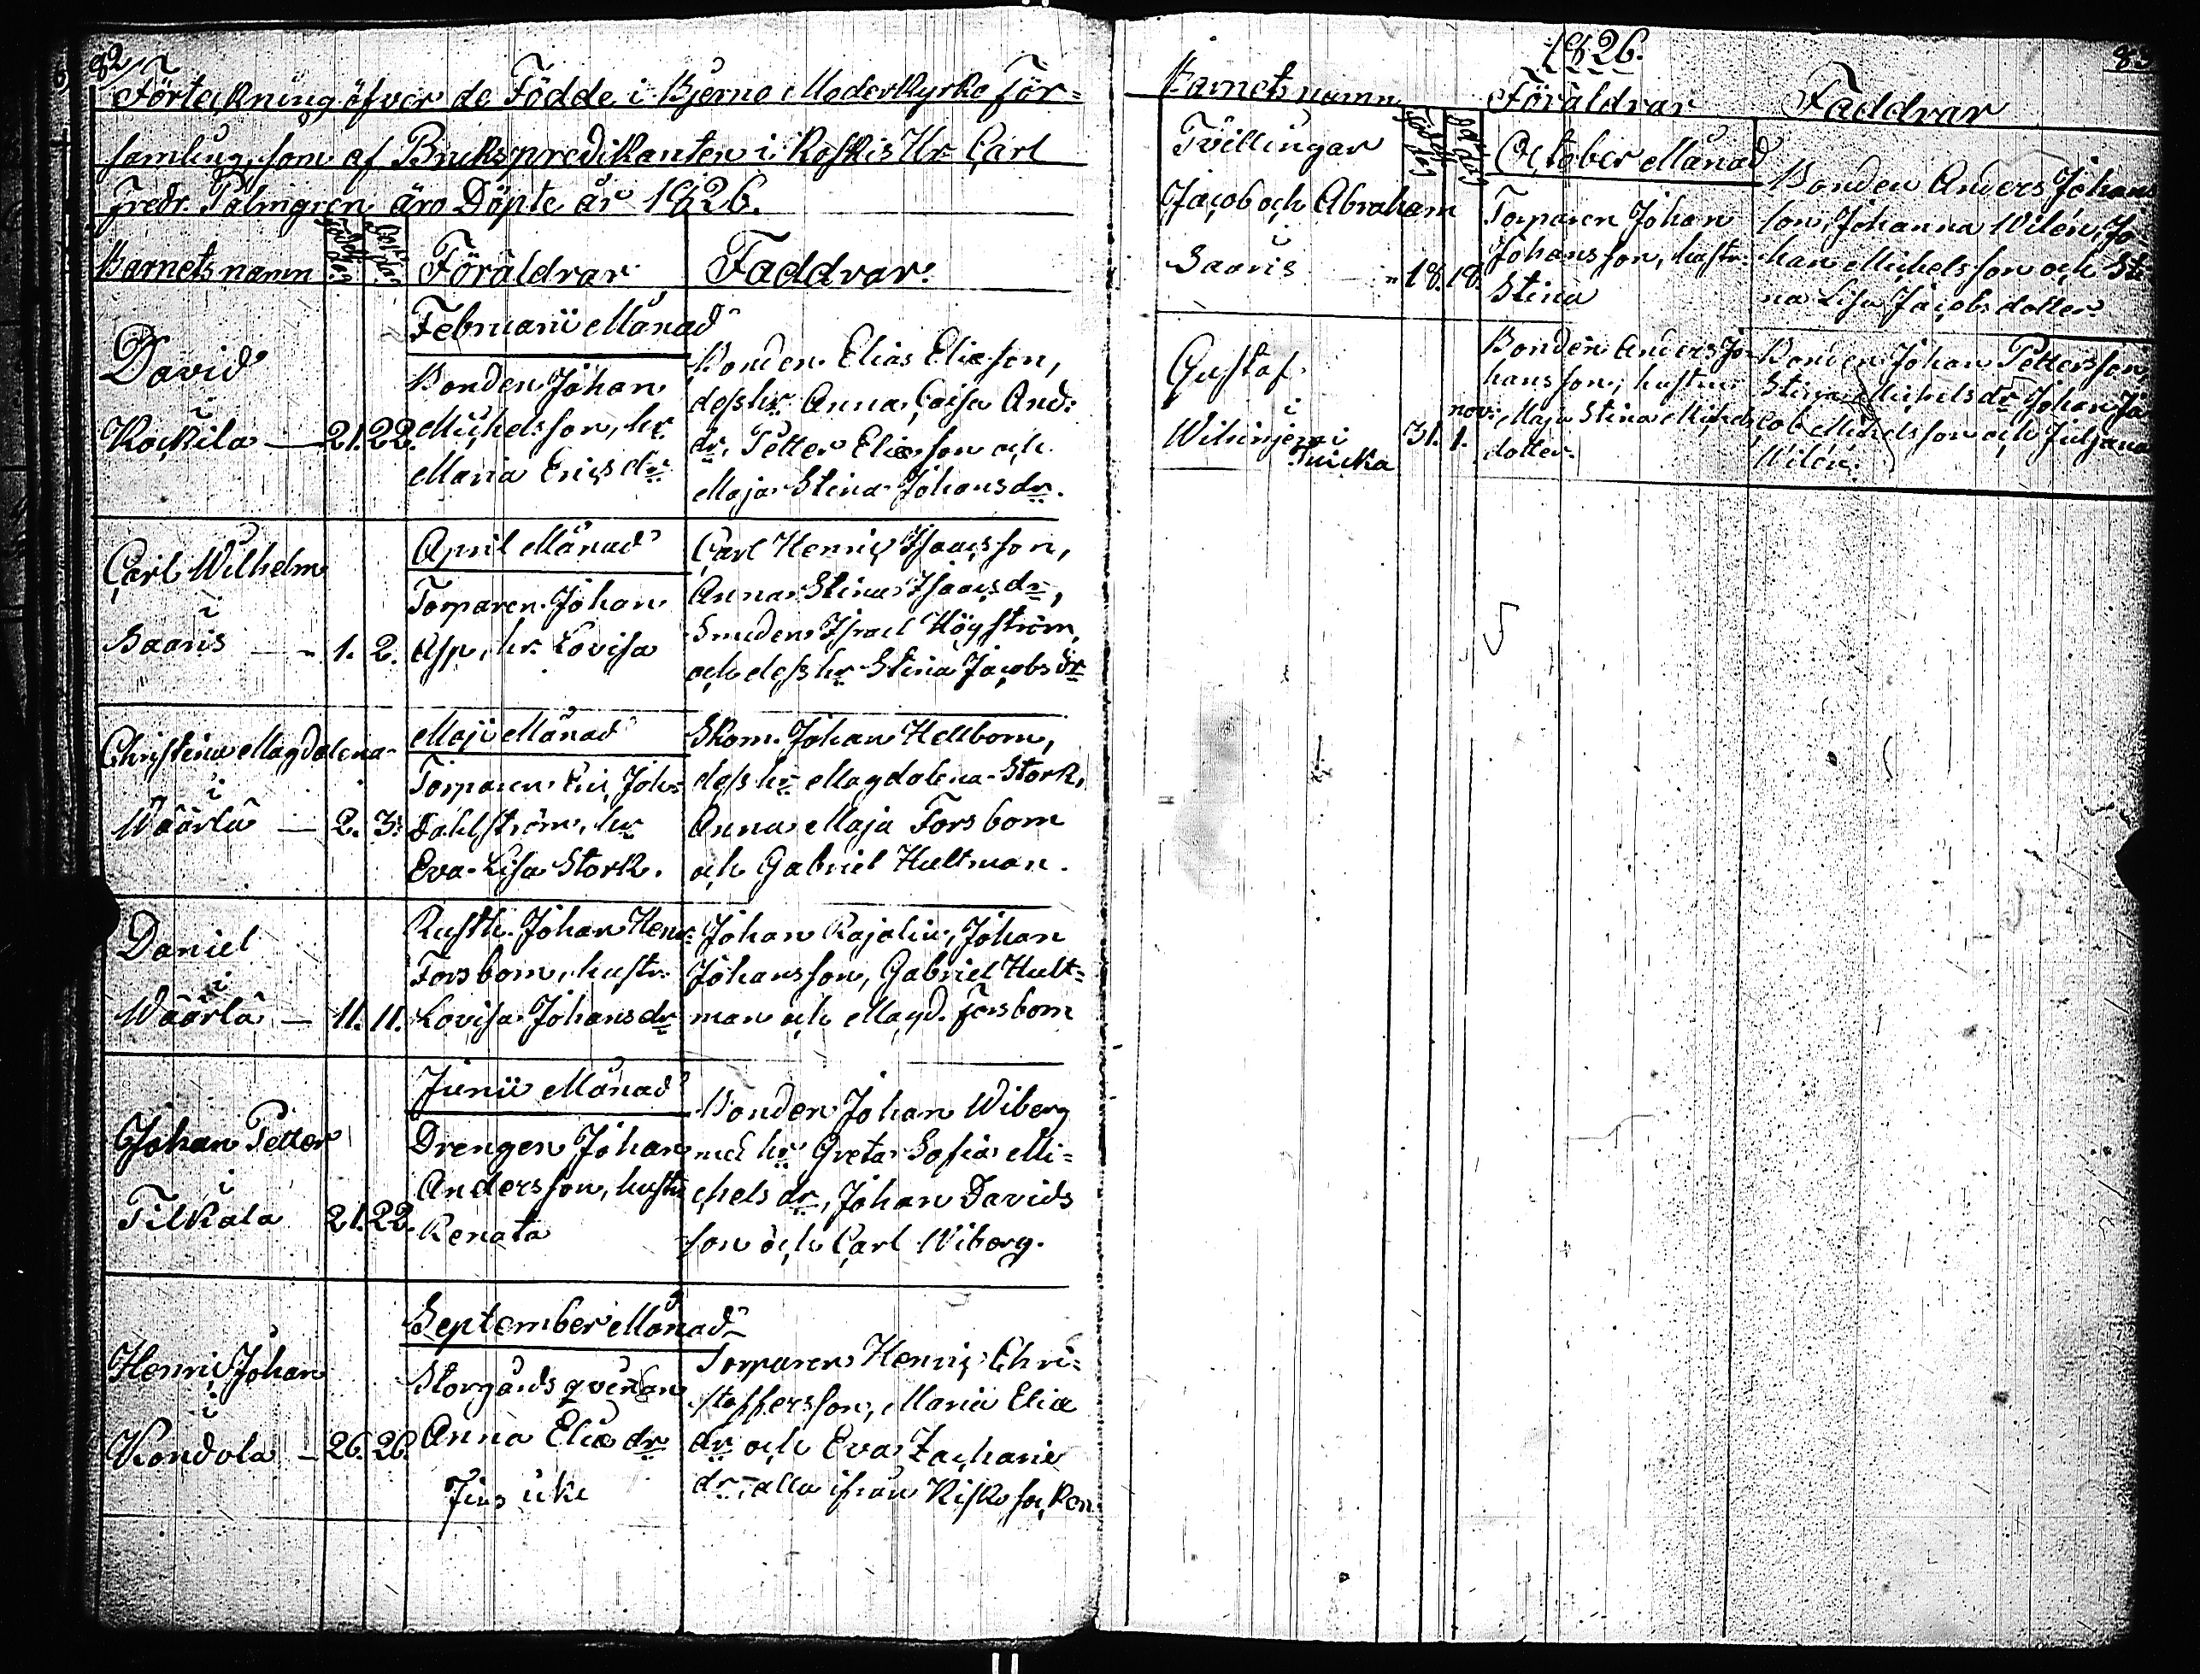 82
Förteckning öfver de Födde i Bjerno Moderkyrko För-
samling, som af Brukspredikanten i Koskis Hr Carl
Fredr. Palmgren äro Döpte år 1826.
Barnets namn Född den Döpt den Föräldrar Faddrar.
Februarii Månad
David
i
Kockila — 21. 22.
Bonden Johan
Michelsson, hr.
Maria Ericsdr
Bonden Elias Eliæson,
dess hr. Anna Caisa And:
dr, Petter Eliæson och
Maja Stina Johansdr.
April Månad
Carl Wilhelm
i
Saaris — 1. 2.
Torparen Johan
Asp, hr. Lovisa
Carl Henric Isaacsson,
Anna Stina Isaacsdr,
Smeden Israel Högström,
och dess hr Stina Jacobsdr
Maji Månad
Christina Magdalena
i
Wäärlä — 2. 3.
Torparen Eric Joh:
Dahlström, hr
Eva Lisa Stork.
Skom. Johan Hellbom,
dess hr Magdalena Stork,
Anna Maja Forsbom
och Gabriel Hultman.
Daniel
i
Wäärlä — 11. 11.
Rusth. Johan Henr:
Forsbom, hustr.
Lovisa Johansdr
Johan Rajalin, Johan
Johansson, Gabriel Hult-
man och Magd. Forsbom
Junii Månad
Johan Petter
i
Tilkala 21. 22.
Drengen Johan
Andersson, hustr
Renata
Bonden Johan Wiberg
med hr Greta Sofia Mi-
chelsdr, Johan Davids
son och Carl Wiberg.
September Månad
Henric Johan
i
Kondola — 26. 26.
Storgårds qvinnan
Anna Eliædr
Torparen Henric Chri-
stoffersson, Maria Eliæ
dr och Eva Zachariæ
dr, alla ifrån Kisko socken
1826.
83
Barnets namn Född den Döpt den Föräldrar Faddrar
October Månad
Tvillingar
Jacob och Abraham
i
Saaris — 18. 18.
Torparen Johan
Johansson, hustr.
Stina
Bonden Anders Johans
son, Johanna Wilén, Jo-
han Michelsson och Sti
na Lisa Jacobsdotter
Gustaf
i
31. nov. 1.
Bonden Anders Jo-
hansson, hustru
Maja Stina Michels
dotter.
Bonden Johan Pettersson,
Stina Michelsdr Johan Ja
cob Michelsson och Juliana
Wilén.